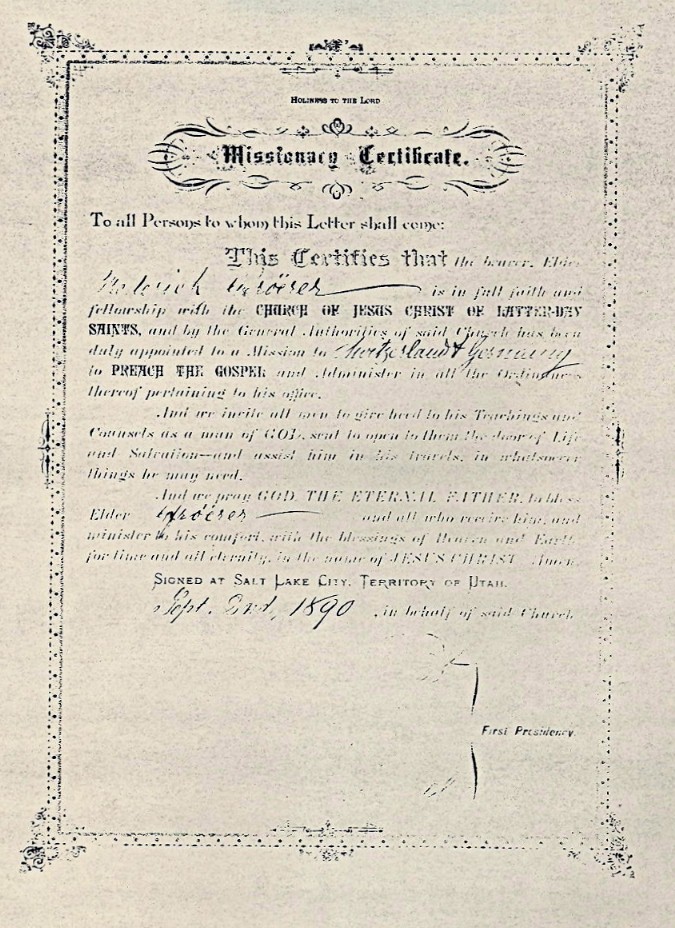 HOLINESS TO THE LORD
Missionary Certificate.
To all Persons to whom this Letter shall come:
This Certifies that the bearer, Elder
is in full faith and
fellowship with the CHURCH OF JESUS CHRIST OF LATTER-DAY
SAINTS, and by the General Authorities of said Church has been
duly appointed to a Mission to Switzerland & Germany
to PREACH THE GOSPEL and Administer in all the Ordinances
thereof pertaining to his office.
And we invite all men to give heed to his Teachings and
Counsels as a man of GOD, sent to open to them the door of Life
and Salvation—and assist him in his travels, in whatsoever
things he may need.
And we pray GOD, THE ETERNAL FATHER, to bless
Elder and all who receive him, and
minister to his comfort, with the blessings of Heaven and Earth,
for time and all eternity, in the name of JESUS CHRIST. Amen.
SIGNED AT SALT LAKE CITY, TERRITORY OF UTAH.
Sept. 2nd, 1890 in behalf of said Church
First Presidency.